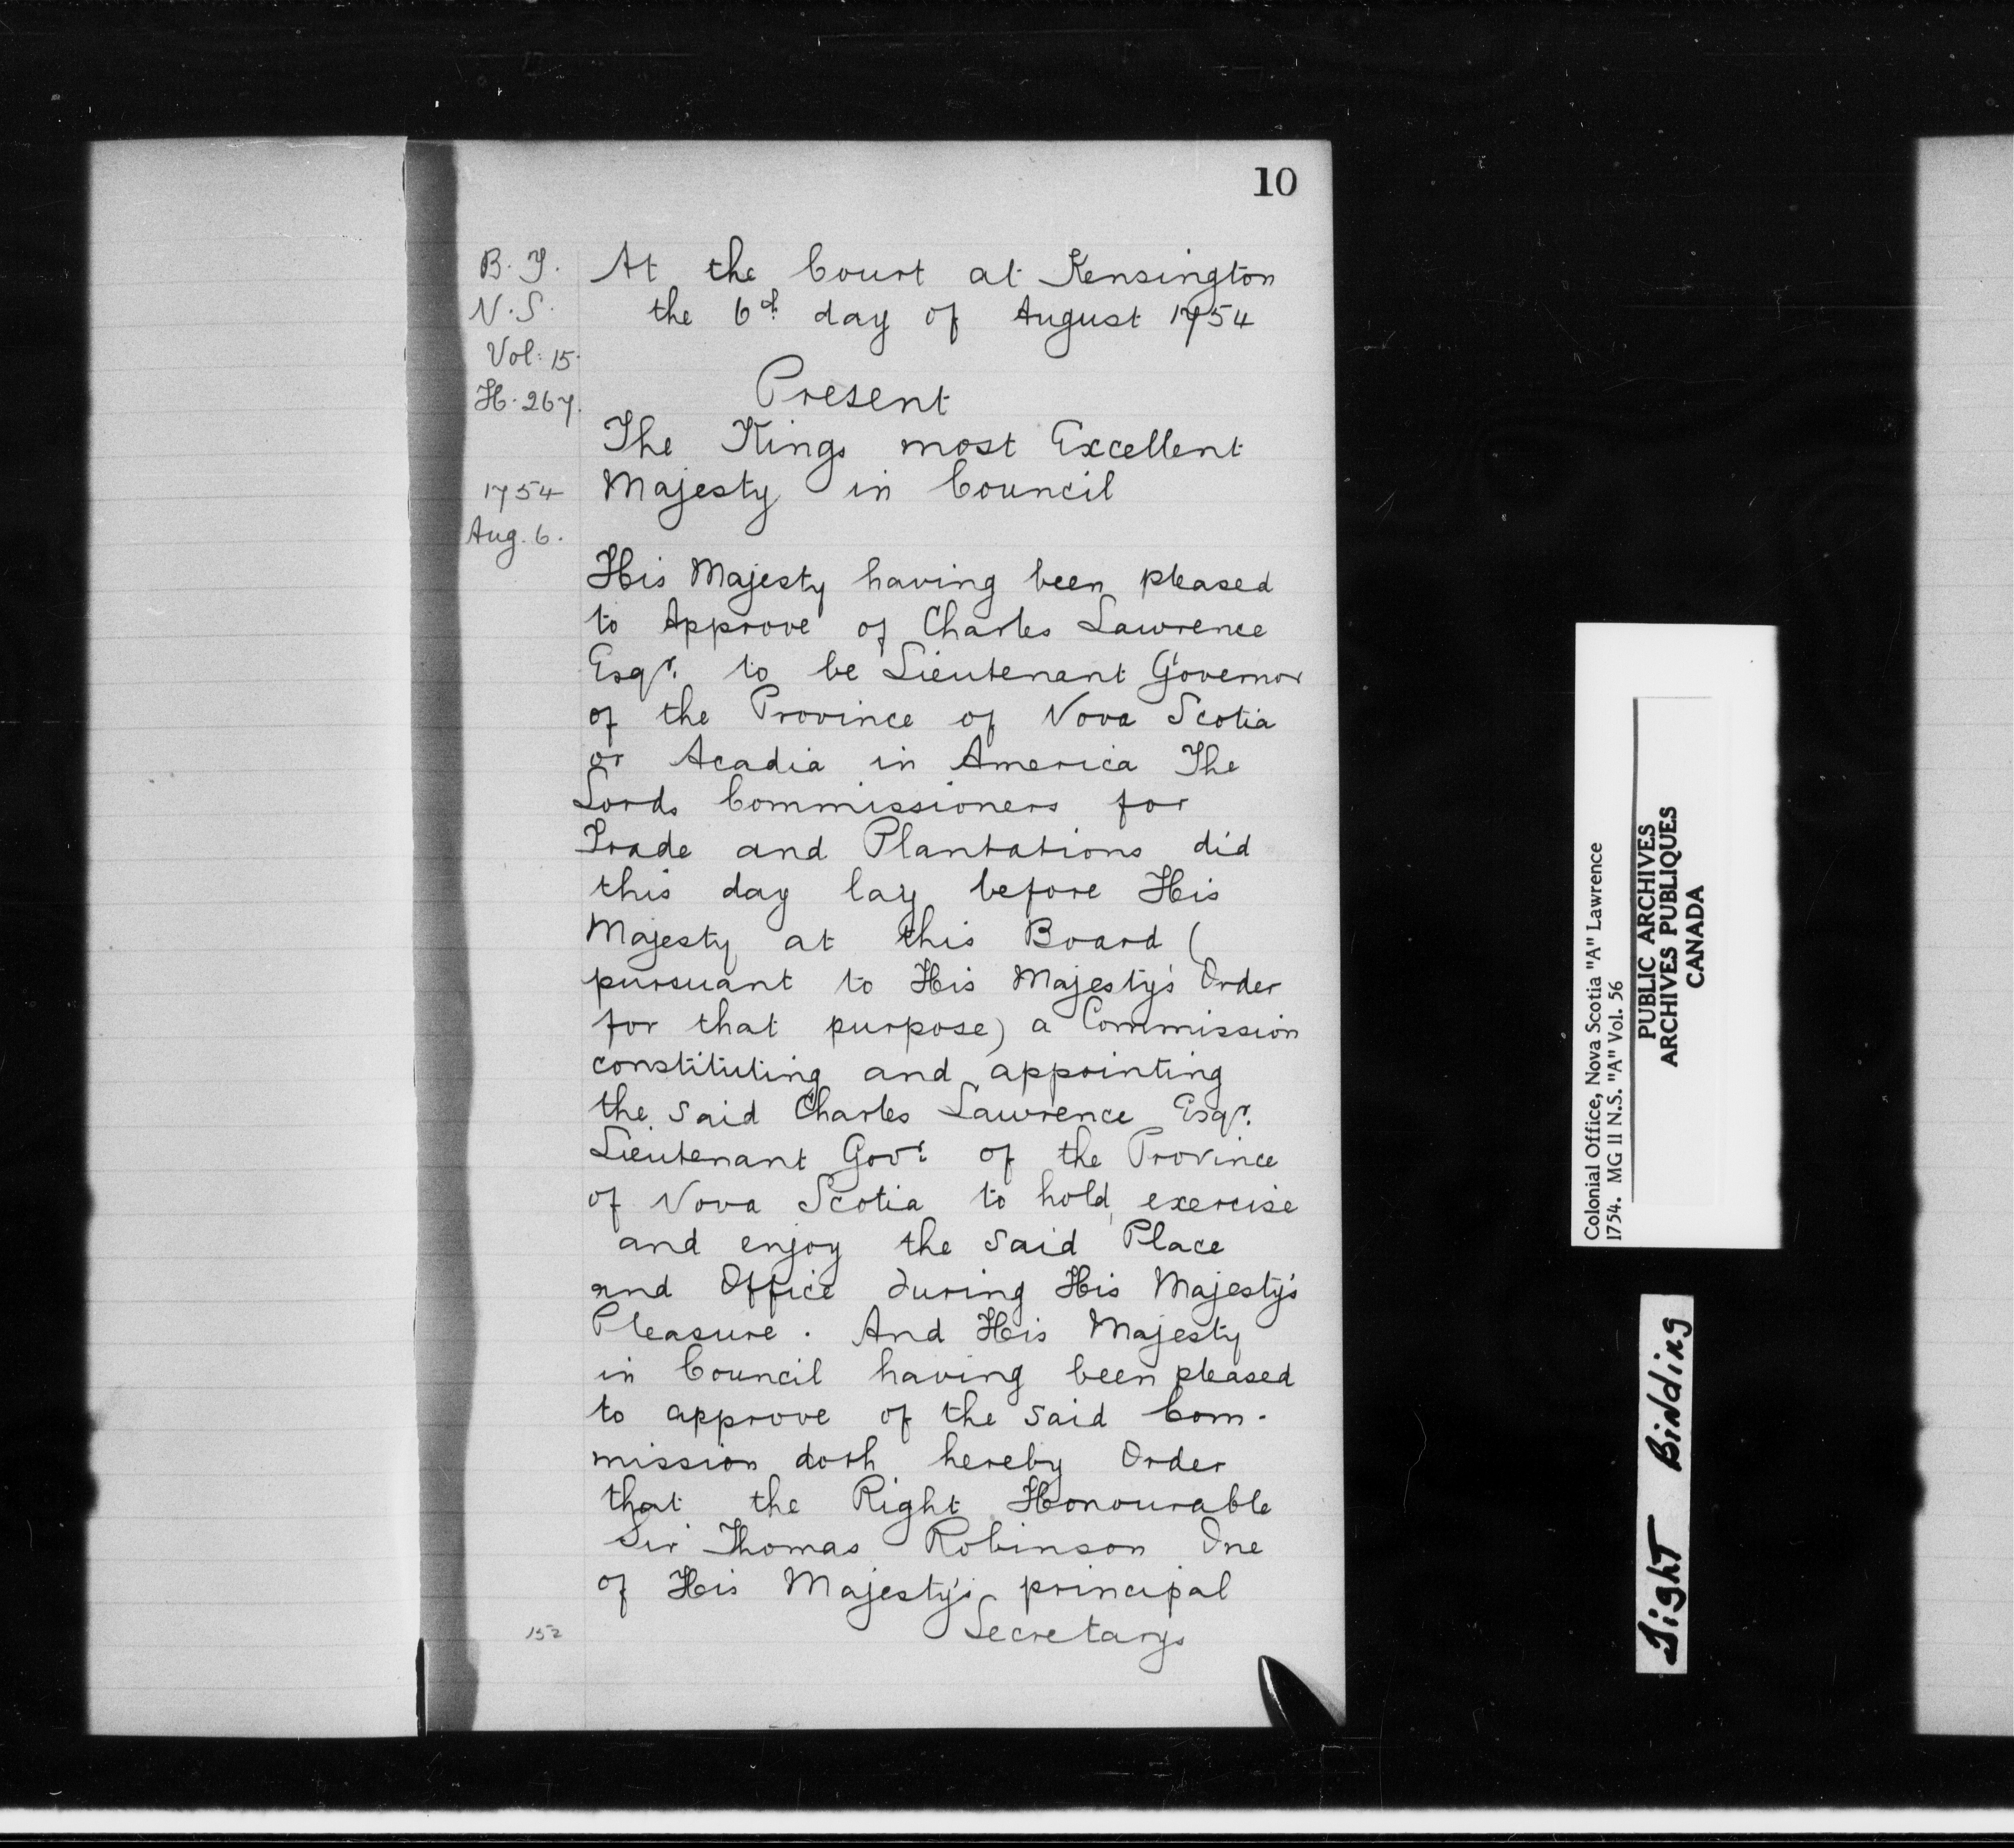 10
B. T.
N. S.
Vol: 15.
H. 267.
1754
Aug. 6.
At the Court at Kensington
the 6th day of August 1754
Present
The Kings most Excellent
Majesty in Council
His Majesty having been pleased
to Approve of Charles Lawrence
Esqr. to be Lieutenant Governor
of the Province of Nova Scotia
or Acadia in America The
Lords Commissioners for
Trade and Plantations did
this day lay before His
Majesty at this Board (
pursuant to His Majesty's Order
for that purpose) a Commission
constituting and appointing
the said Charles Lawrence Esqr.
Lieutenant Govr. of the Province
of Nova Scotia to hold, exercise
and enjoy the said Place
and Office during His Majesty's
Pleasure. And His Majesty
in Council having been pleased
to approve of the said Com-
mission doth hereby Order
that the Right Honourable
Sir Thomas Robinson One
of His Majesty's principal
Secretarys
152
Colonial Office, Nova Scotia "A" Lawrence
1754. MG 11 N.S. "A" Vol. 56
PUBLIC ARCHIVES
ARCHIVES PUBLIQUES
CANADA
Tight Binding